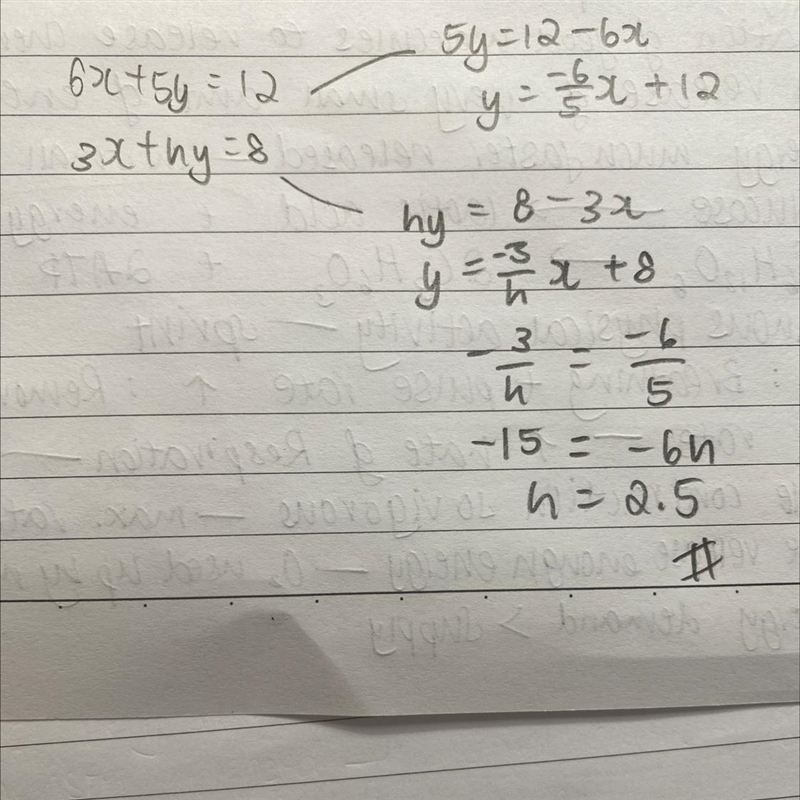 5y = 12 - 6x
6x + 5y = 12
y = -6/5 x + 12
3x + hy = 8
hy = 8 - 3x
y = -3/h x + 8
-3/h = -6/5
-15 = -6h
h = 2.5
#